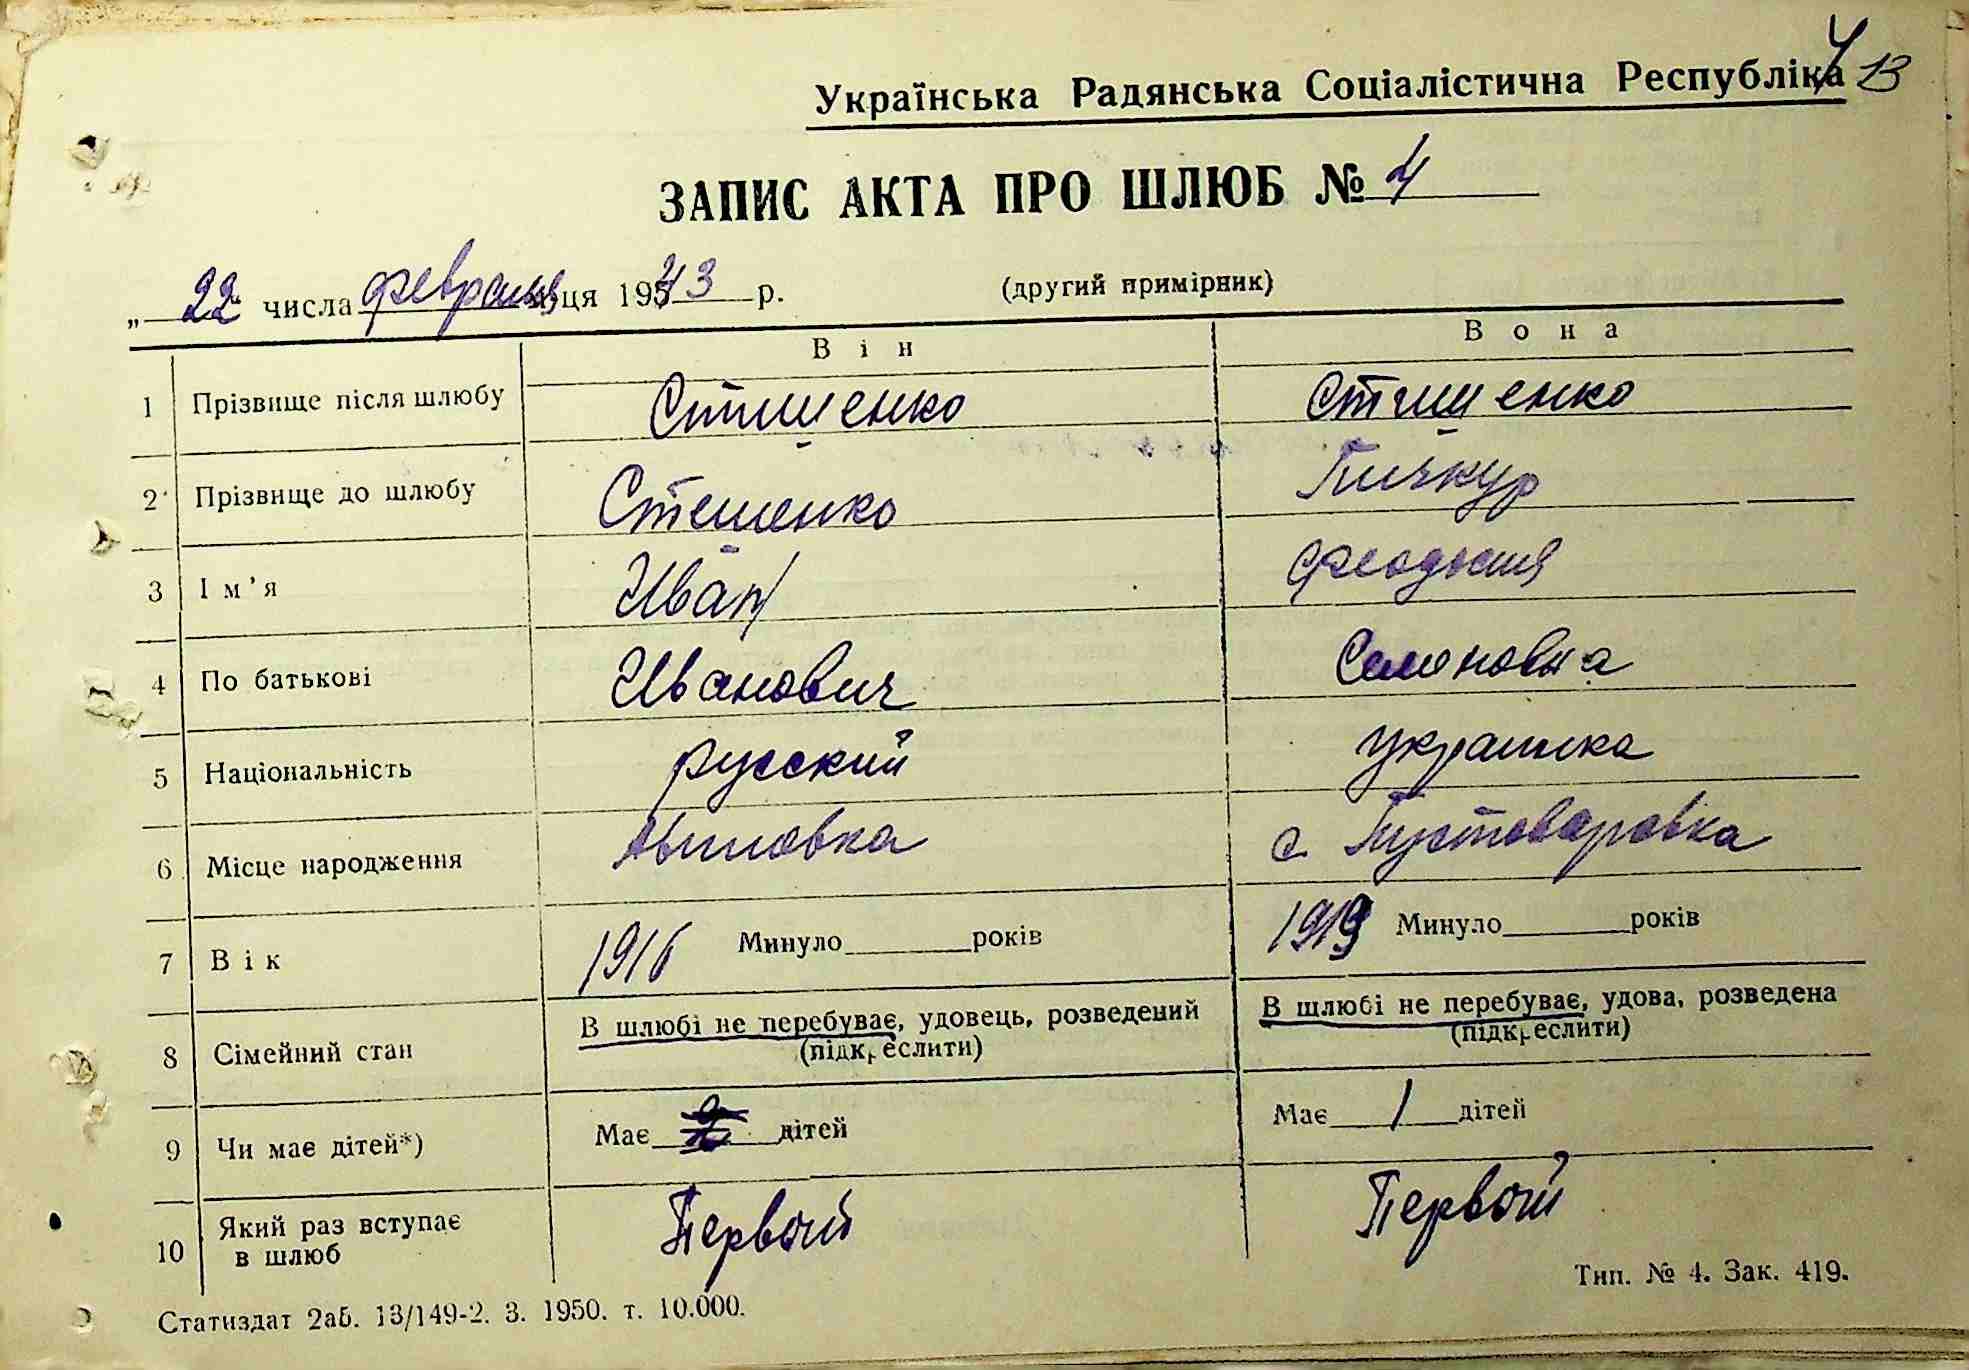 4 13
Українська Радянська Соціалістична Республіка
ЗАПИС АКТА ПРО ШЛЮБ № 4
„ 22 числа февраля ця 1953 р. (другий примірник)
Він Вона
1 Прізвище після шлюбу Стишенко Стишенко
2 Прізвище до шлюбу Стешенко Пичкур
3 Ім'я Иван Феодосия
4 По батькові Иванович Семеновна
5 Національність русский украинка
6 Місце народження с. Пустоваровка
7 Вік 1916 Минуло років 1919 Минуло років
8 Сімейний стан В шлюбі не перебуває, удовець, розведений В шлюбі не перебуває, удова, розведена
(підкреслити) (підкреслити)
9 Чи має дітей*) Має дітей Має 1 дітей
10 Який раз вступає Первый Первый
в шлюб
Тип. № 4. Зак. 419.
Статиздат 2аб. 13/149-2. 3. 1950. т. 10.000.